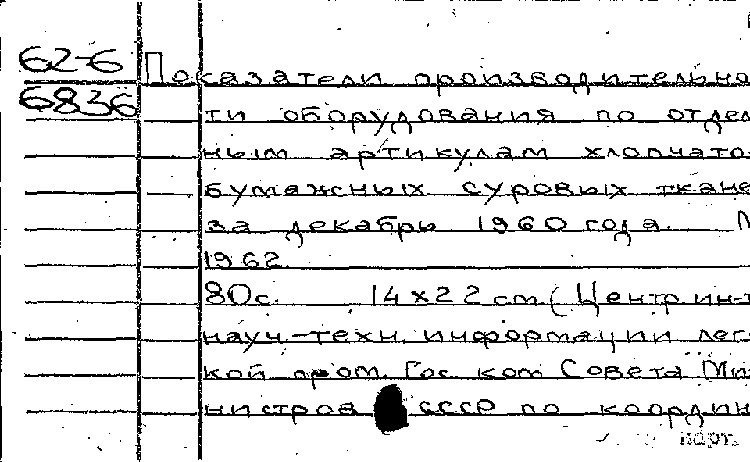 62-6 Показатели производительно
6836 ти оборудования по отдел
ным артикулам хлопчато
бумажных суровых ткане
за декабрь 1960 года. М
1962
80с. 14x22 см (Центр ин-т
науч-техн. информации лег
кой пром. Гос ком Совета Ми
нистров СССР по координ
карт.